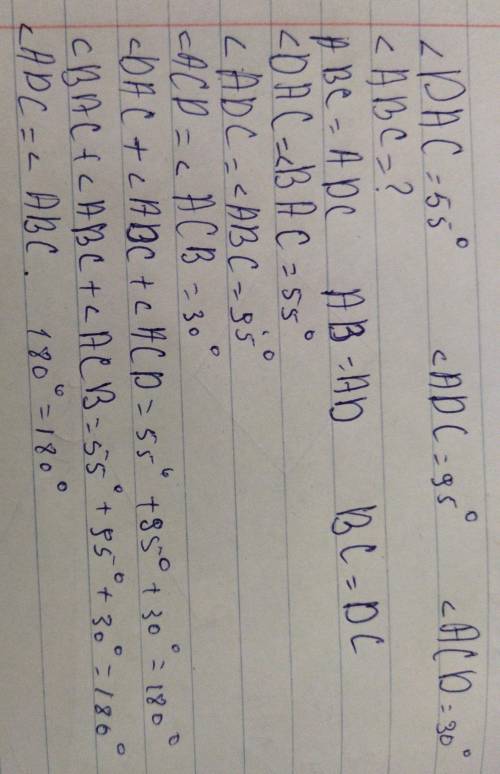 ∠DAC=55° ∠ADC=95° ∠ACD=30°
∠ABC=?
ABC=ADC AB=AD BC=DC
∠DAC=∠BAC=55°
∠ADC=∠ABC=95°
∠ACD=∠ACB=30°
∠DAC+∠ABC+∠ACD=55°+95°+30°=180°
∠BAC+∠ABC+∠ACB=55°+95°+30°=180°
∠ADC=∠ABC. 180°=180°